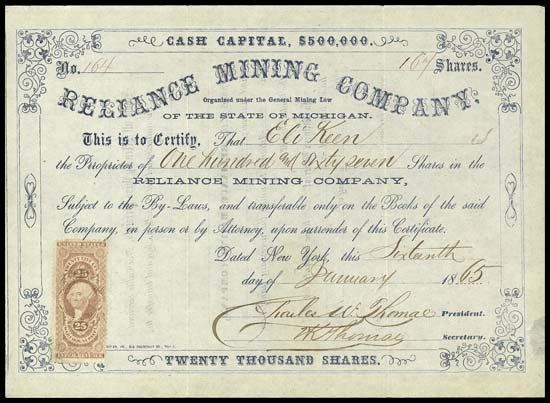 CASH CAPITAL, $500,000.
No. 164 167 Shares.
RELIANCE MINING COMPANY.
Organized under the General Mining Law
OF THE STATE OF MICHIGAN.
This is to Certify, That Eli Keen is
the Proprietor of One hundred and sixty seven Shares in the
RELIANCE MINING COMPANY,
Subject to the By-Laws, and transferable only on the Books of the said
Company, in person or by Attorney, upon surrender of this Certificate.
Dated New York, this Sixteenth
day of January 1865
Charles W. Thomae President.
Secretary.
UNITED STATES
25
25
25
TWENTY THOUSAND SHARES.